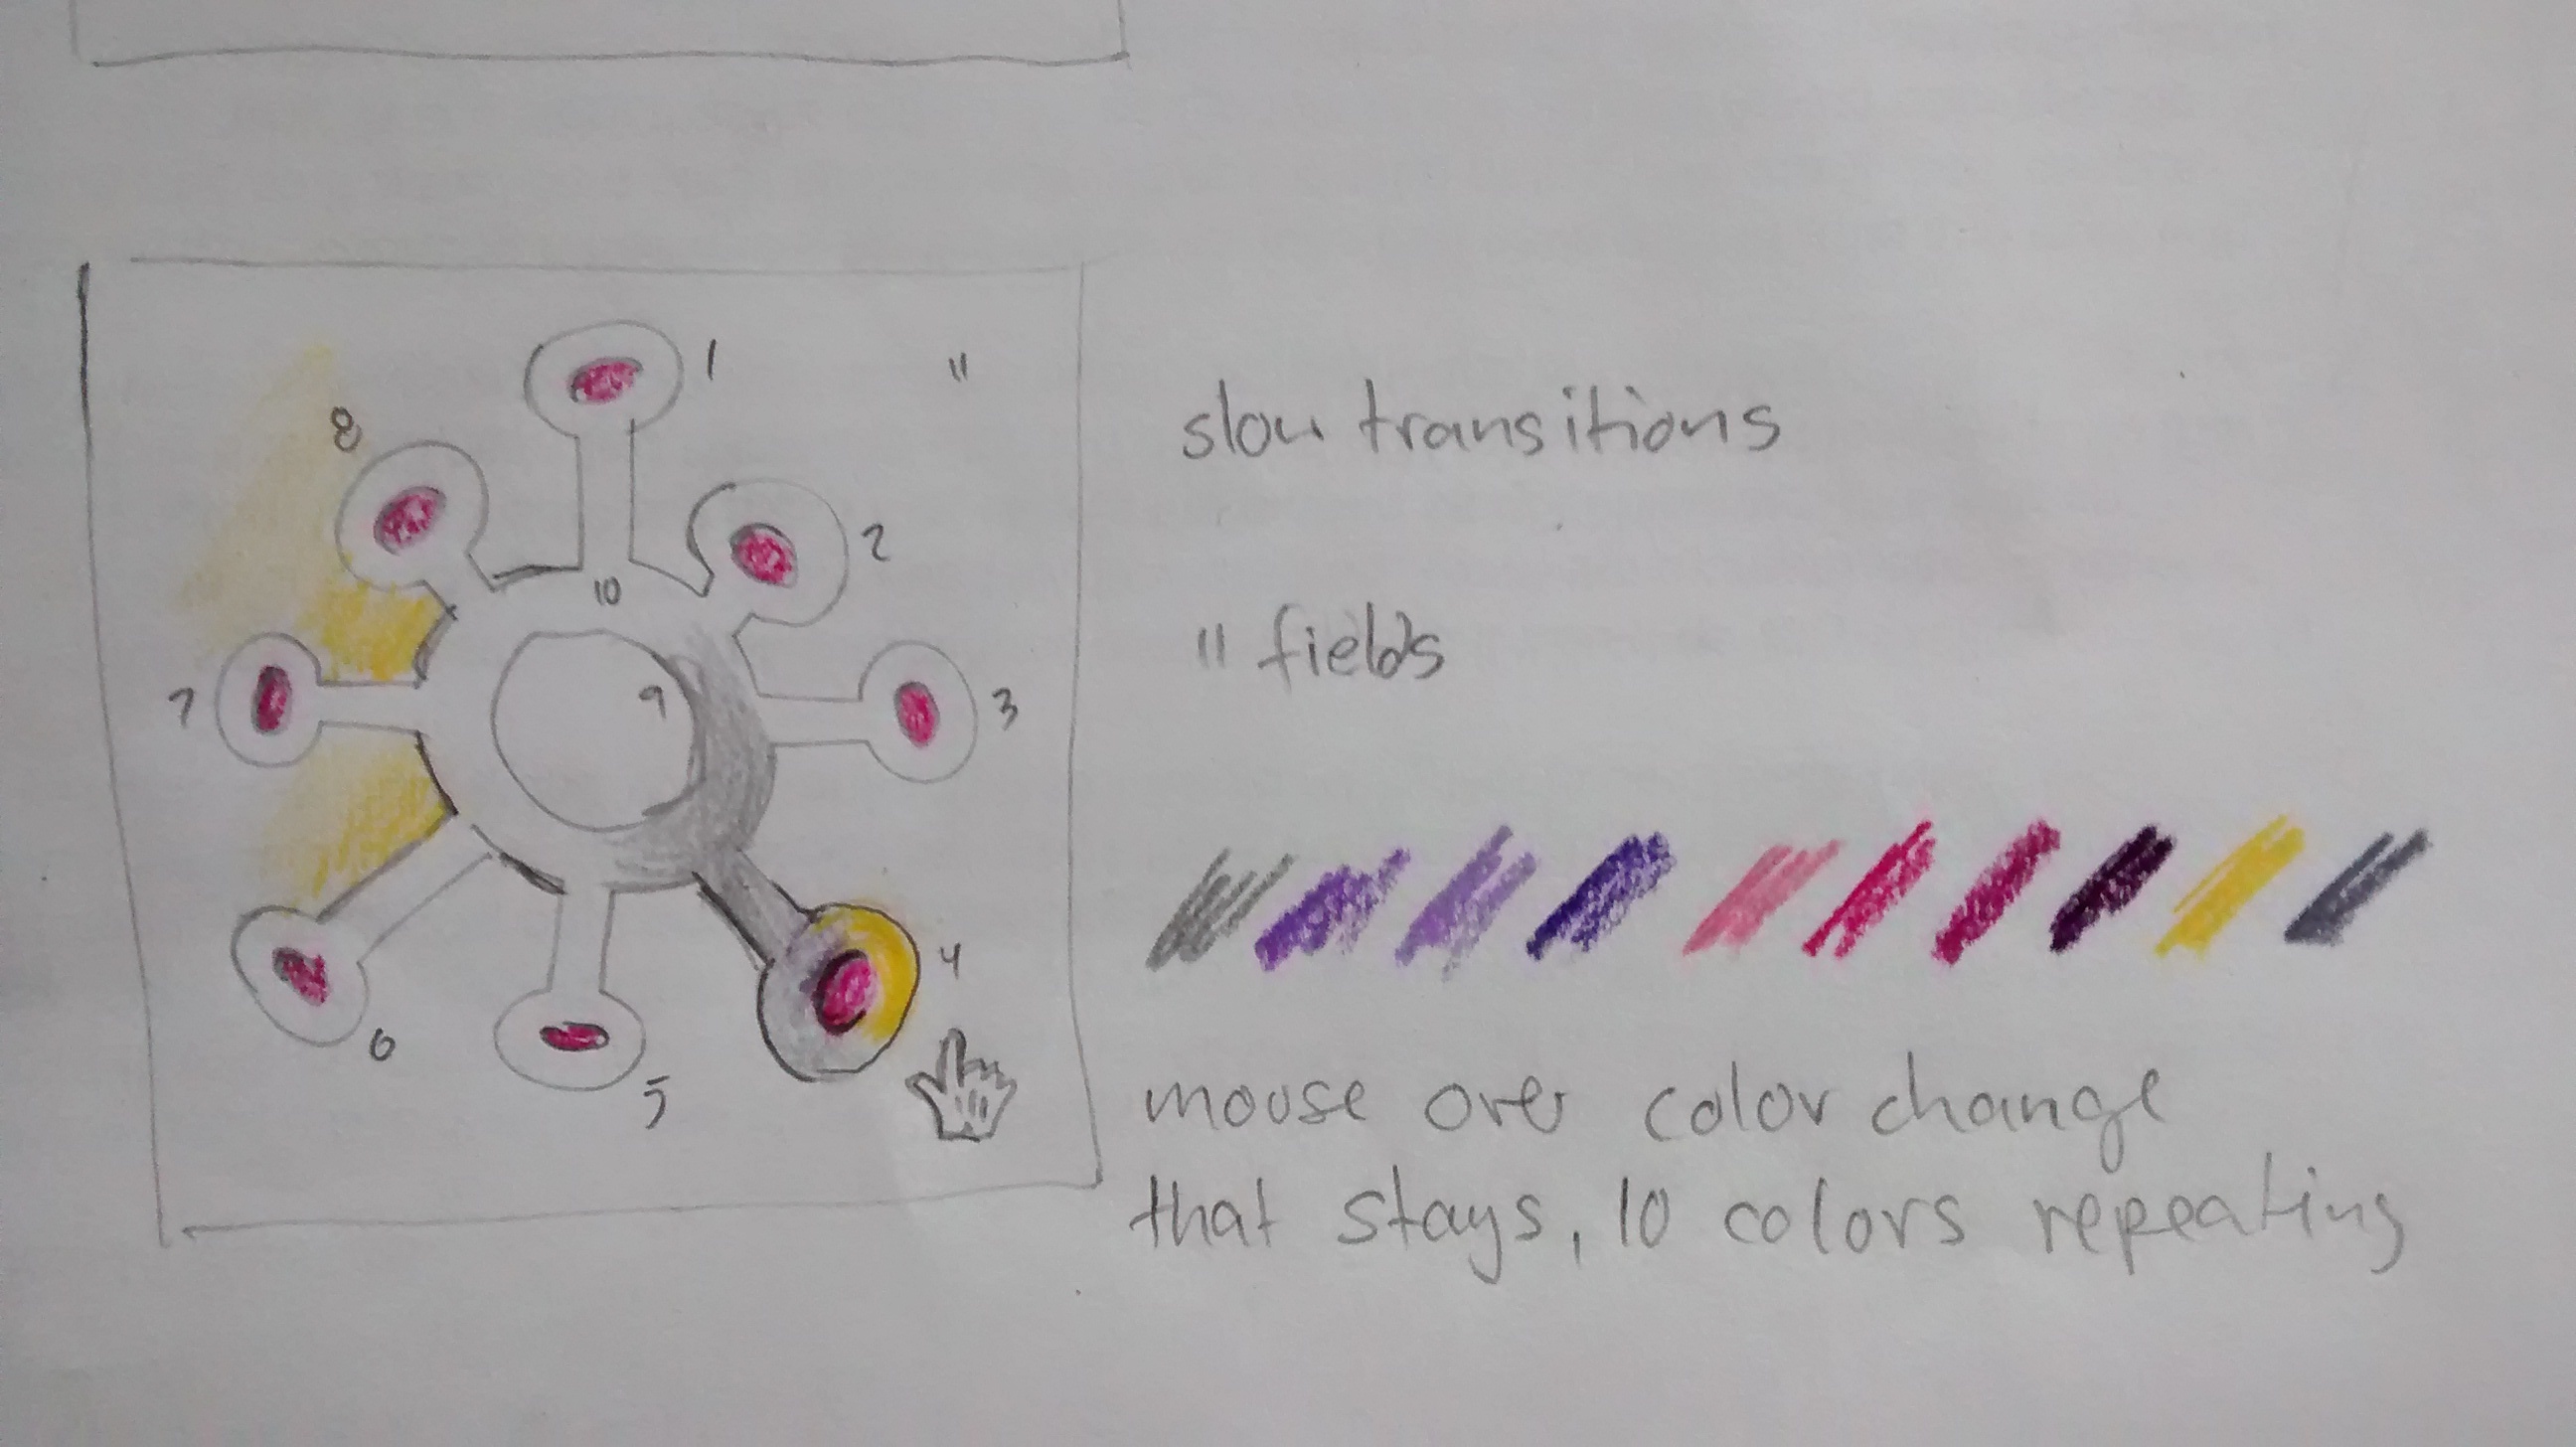 1
11
8
2
10
7
9
3
4
6
5
slow transitions
11 fields
mouse over color change
that stays, 10 colors repeating